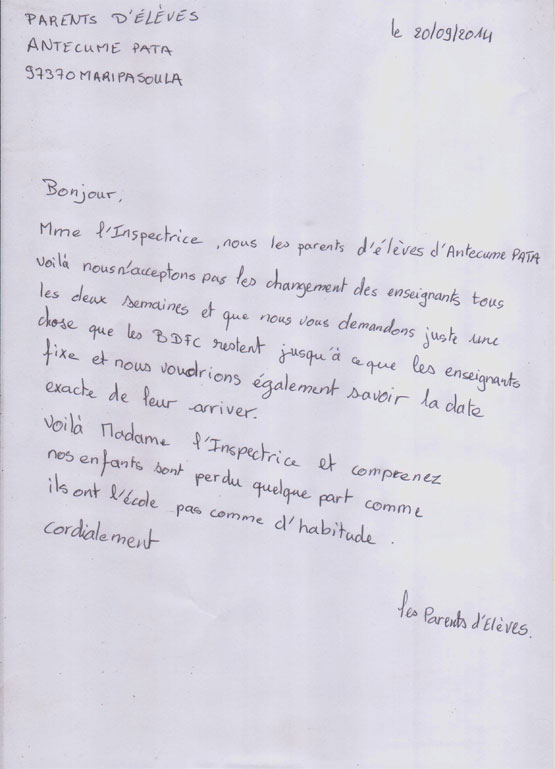 PARENTS D'ÉLÈVES
le 20/09/2014
ANTECUME PATA
97370 MARIPASOULA
Bonjour,
Mme l'Inspectrice, nous les parents d'élèves d'Antecume PATA
voilà nous n'acceptons pas les changement des enseignants tous
les deux semaines et que nous vous demandons juste une
chose que les BDFC restent jusqu'à ce que les enseignants
fixe et nous voudrions également savoir la date
exacte de leur arriver.
Voilà Madame l'Inspectrice et comprenez
nos enfants sont perdu quelque part comme
ils ont l'école pas comme d'habitude.
cordialement
les Parents d'Elèves.